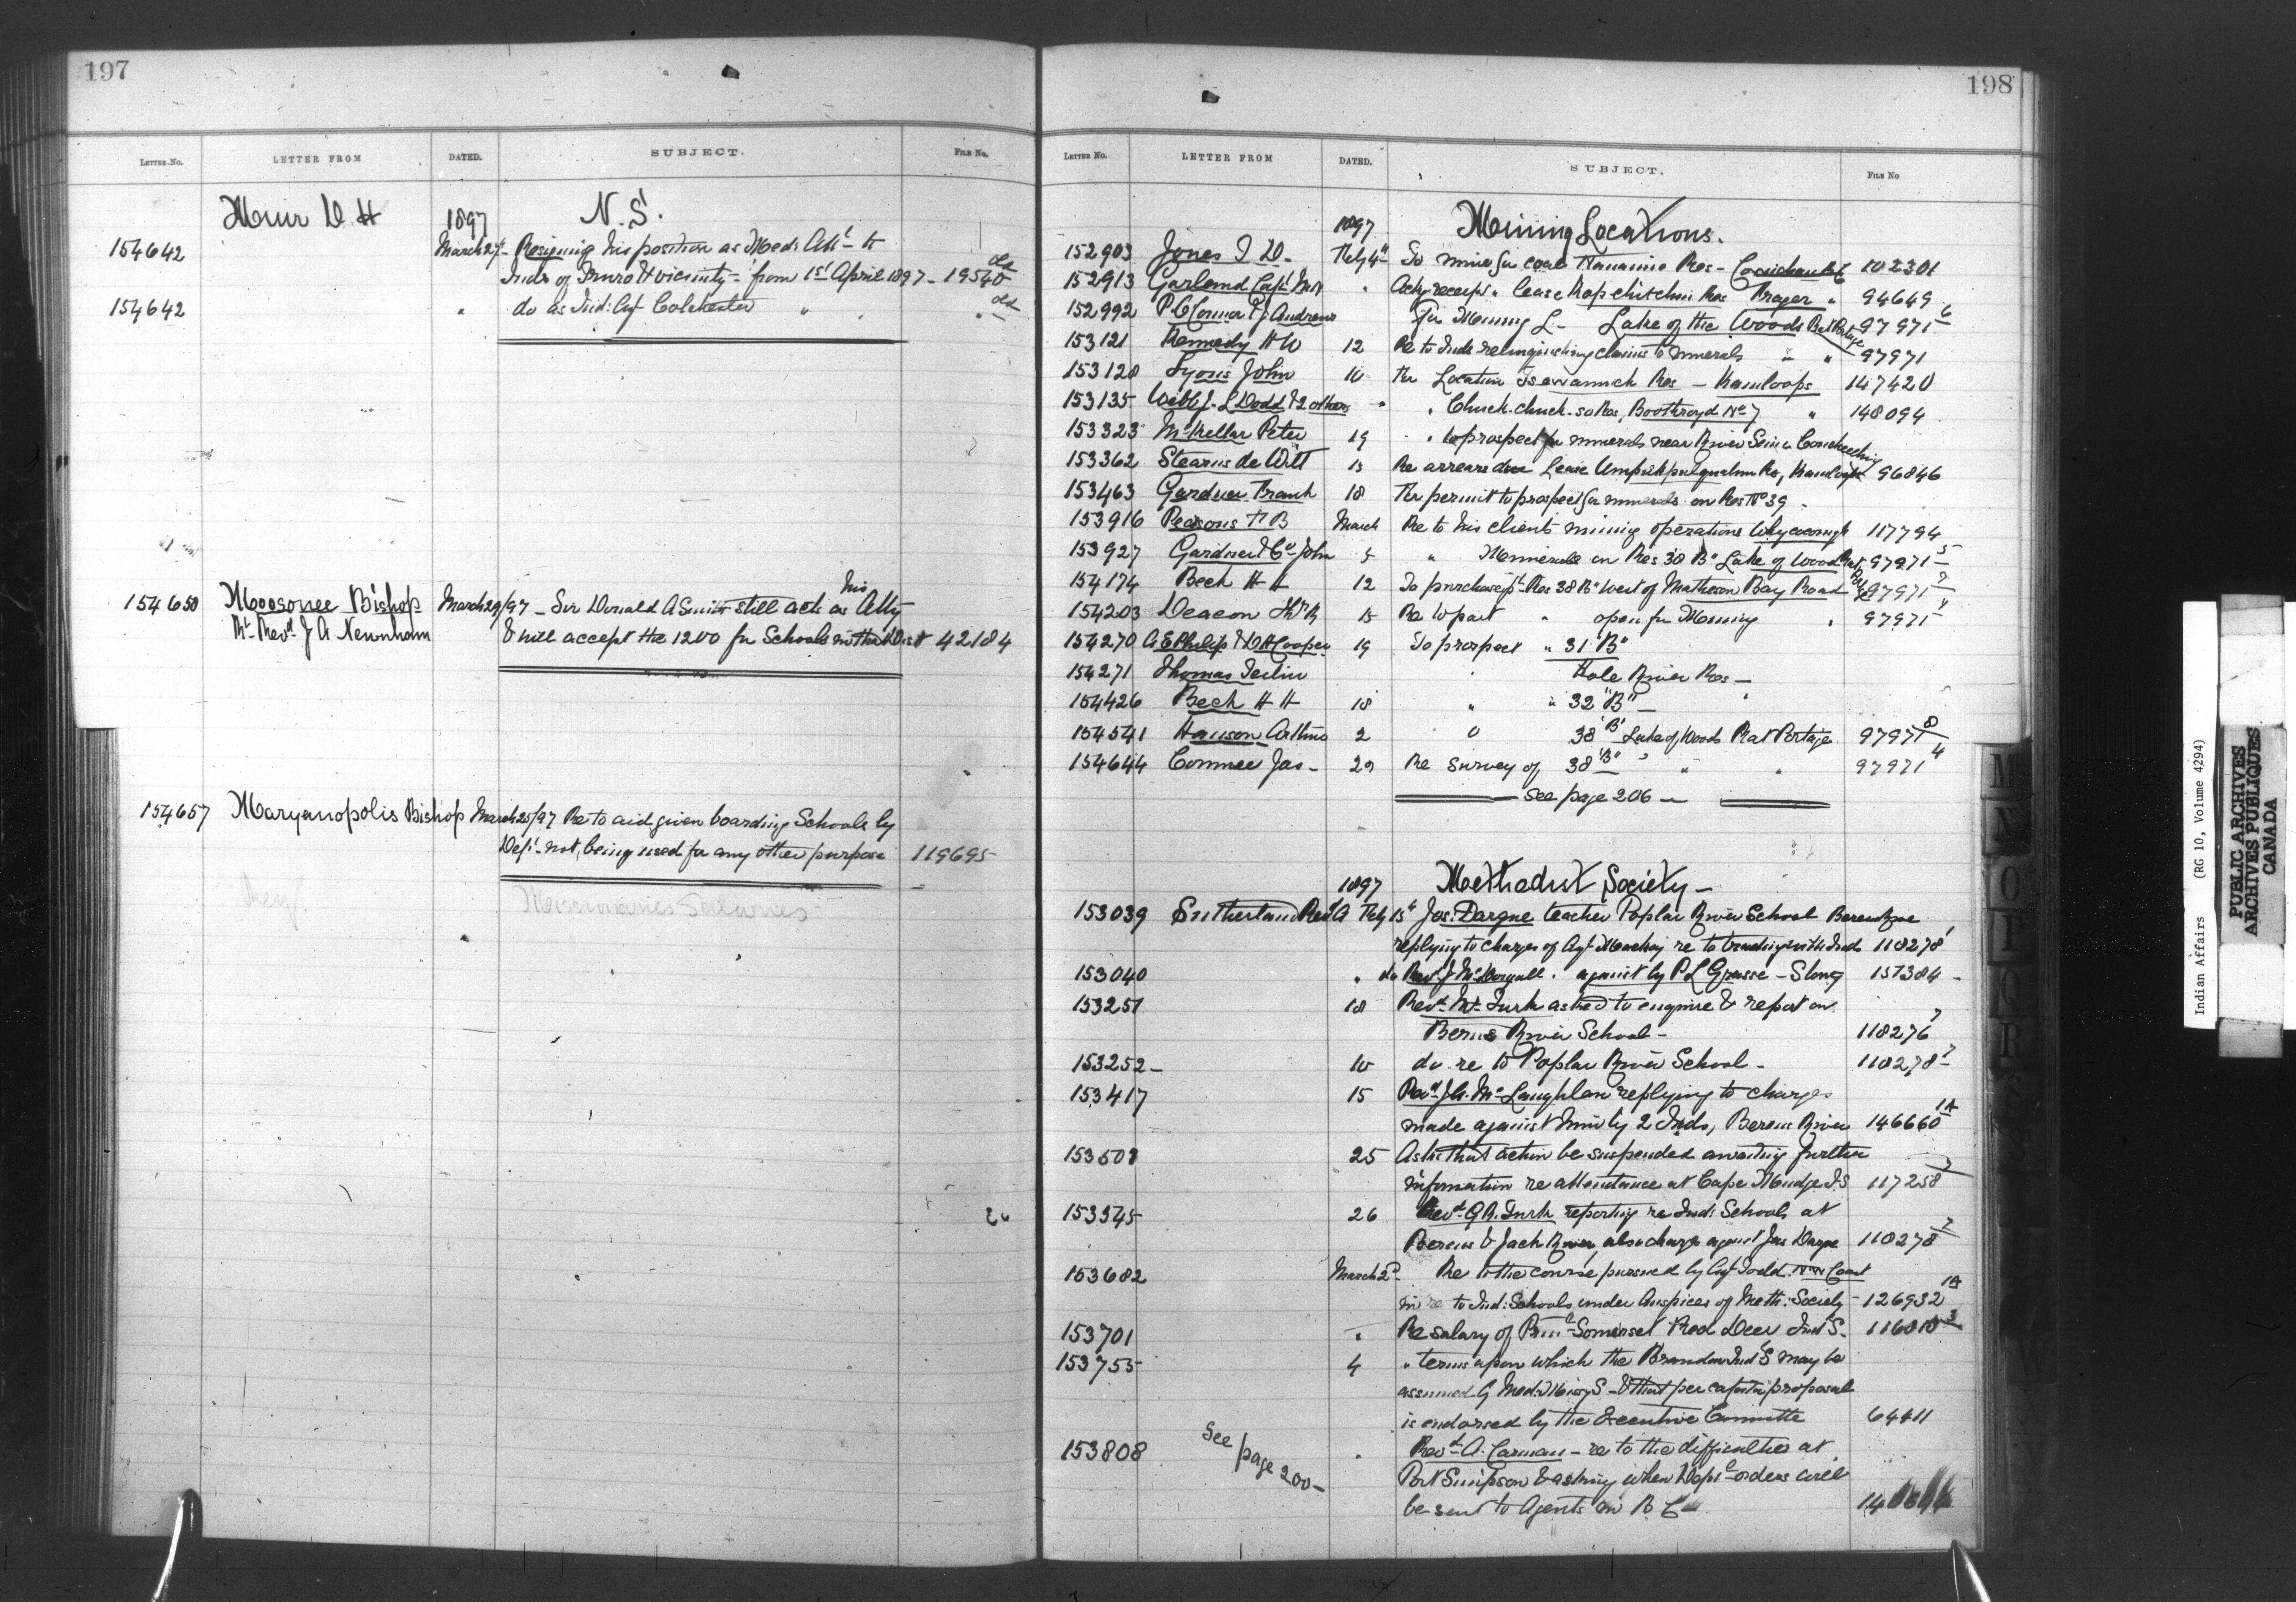 197
LETTER No. LETTER FROM DATED. SUBJECT. FILE No.
Muir D. H 1897 N.S.
154642 March 27 - Resigning his position as Med: Att - to
Inds of Truro & vicinity - from 1st April 1897 - 19540 old
154642 " do as Ind: Agt Colchester " " old
154650 Moosonee Bishop March 29/97 - Sir Donald A Smith still acts as his Atty
Rt Revd J A Newnham & will accept the 1200 for Schools in that Dist 42184
154657 Maryanopolis Bishop March 25/97 Re to aid given boarding Schools by
Dept - not being used for any other purpose 119695
Missionaries Salaries
198
LETTER No. LETTER FROM DATED. SUBJECT. FILE No
1897 Mining Locations.
152903 Jones I D - Feby 4th To mine for coal Nanaimo Res - Cowichan 102301
152913 Garland Capt " Ackg receipt " lease Fraser " 94649
152992 P. O'Connor & J Andrews For Mining L - Lake of the Woods Rat Portage 97971 6
153121 Kennedy H W 12 Re to Inds relinquishing claims to minerals " " 97971
153128 Lyons John 10 For Location Res - Kamloops 147420
153135 Webb J. L Dodd & 2 others " " Chuck-chuck-so Res, Boothroyd No 7 " 148094
153323 McKellar Peter 19 " to prospect for minerals near River Seine Coucheeching
153362 Stearns de Witt 13 Re arrears due Lease Res, Kamloops 96846
153463 Gardner Frank 18 For permit to prospect for minerals on Res No 39 -
153916 Pearsons H B March Re to his clients mining operations Whycocomagh 117794
153927 Gardner & Co John 5 " Minerals on Res 38 "B" Lake of Woods Rat 97971 5
154174 Beck H H 12 To purchase pt Res 38 B" West of Matheson Bay Road 97971 7
154203 Deacon Th R 15 Re to part " open for Mining " 97971
154270 A E Philip & D H Cooper 19 To prospect " 31 "B"
154271 Thomas " Hole River Res -
154426 Beck H H 18 " " 32 "B" - "
154541 Hanson Arthur 2 " 38 "B" Lake of Woods Rat Portage 97971 8
154644 Conmee Jas - 29 Re survey of 38 "B" " " " 97971 4
See page 206 -
1897 Methodist Society -
153039 Sutherland Revd A Feby 13th Jos: Dargue teacher Poplar River School Berens River
replying to charges of Agt Mackay re to trading with Inds 118278
153040 " do Revd J McDougall . against by P L Grasse - Stony 151384 -
153251 18 Revd Mr Turk asked to enquire & report on
Berens River School - 118276 7
153252 - 10 do re to Poplar River School - 118278 7
153417 15 Revd J A. McLaughlan replying to charges
made against him by 2 Inds, Berens River 146660 1A
153501 25 Asks that action be suspended awaiting further
information re attendance at Cape Mudge I S 117258 7
153545 26 Revd G R. Turk reporting re Ind: Schools at
Berens & Jack River, also charge against Jas Dargue 118278 7
153682 March 2d Re to the course pursued by Agt Todd. NW Coast
in re to Ind: Schools under Auspices of Meth: Society - 126932 1A
153701 " Re salary of Prin - Somerset Red Deer Ind S. 116818 3
153755 4 " terms upon which the Brandon Ind S may be
assumed by Med: Missy S - & that per capita proposal
is endorsed by the Executive Committe 64411
153808 See page 200 - " Revd A. Carman - re to the difficulties at
Port Simpson & asking when Dept orders will
be sent to Agents in B C
Indian Affairs (RG 10, Volume 4294)
PUBLIC ARCHIVES
ARCHIVES PUBLIQUES
CANADA
M
N
O
P
Q
R
S